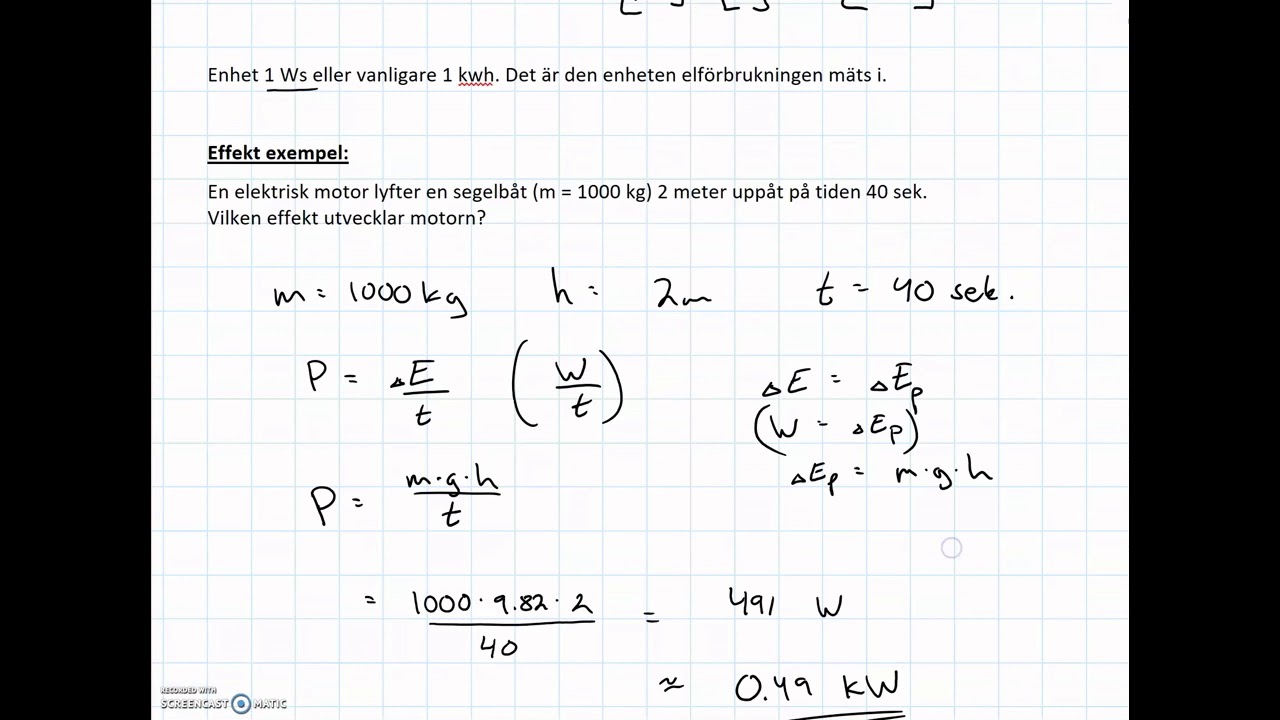 Enhet 1 Ws eller vanligare 1 kwh. Det är den enheten elförbrukningen mäts i.
Effekt exempel:
En elektrisk motor lyfter en segelbåt (m = 1000 kg) 2 meter uppåt på tiden 40 sek.
Vilken effekt utvecklar motorn?
m = 1000 kg h = 2m t = 40 sek.
P = ΔE/t (W/t) ΔE = ΔEp
(W = ΔEp)
ΔEp = m·g·h
P = m·g·h/t
= 1000·9.82·2/40 = 491 W
≈ 0.49 kW
RECORDED WITH
SCREENCAST MATIC